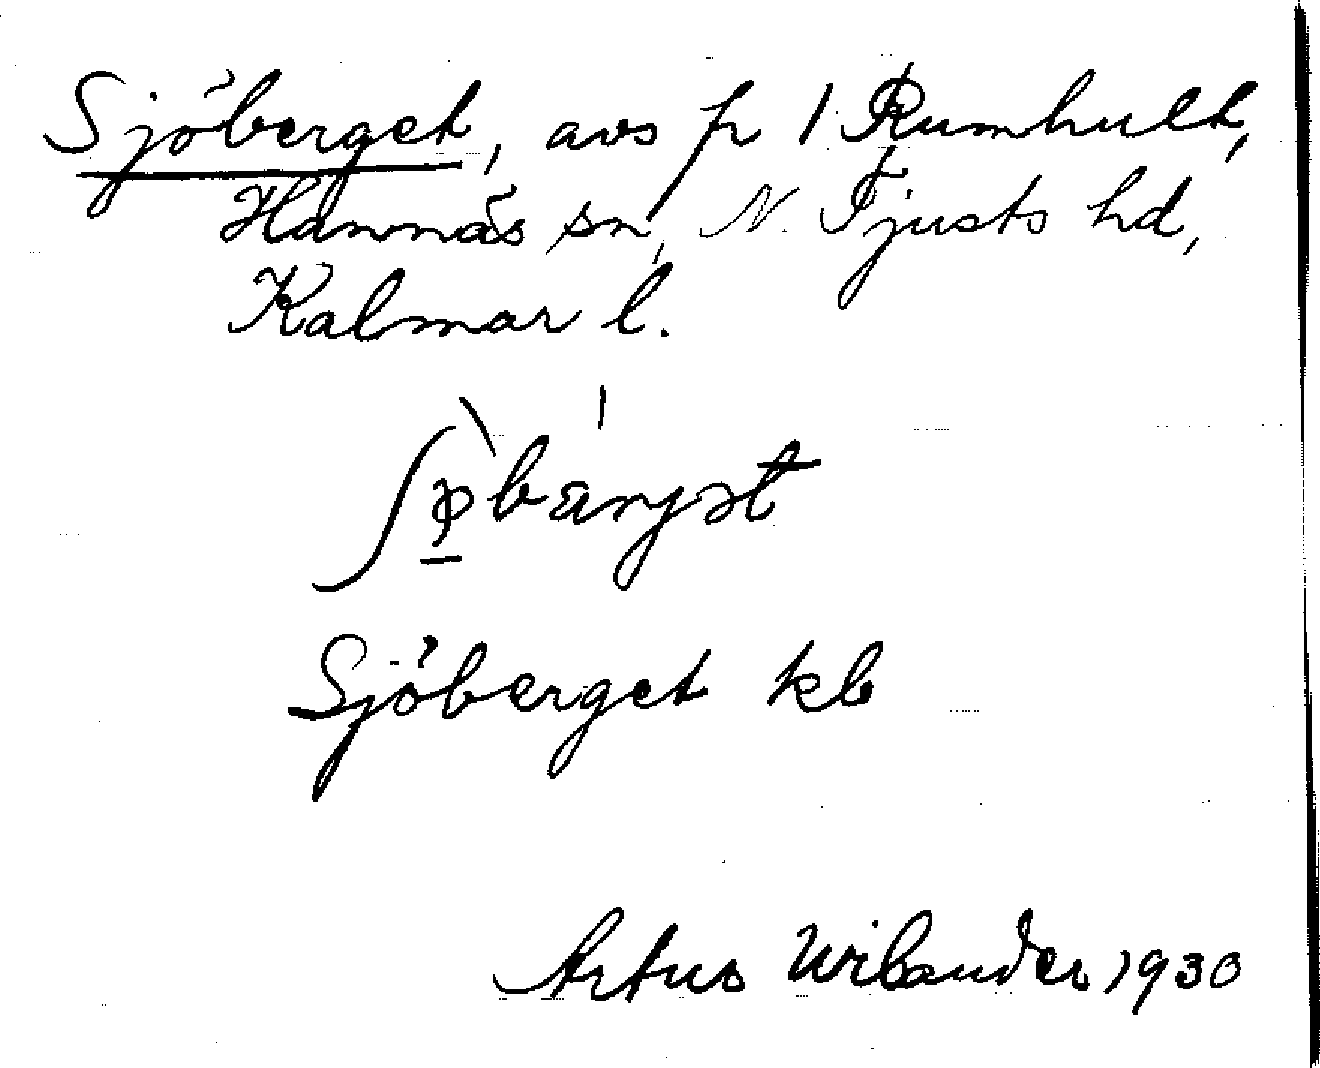 Sjöberget, avs på 1 Rumhult,
Hannäs sn, N. Tjusts hd,
Kalmar l.
Sjöberget kb
Artur Wilander 1930